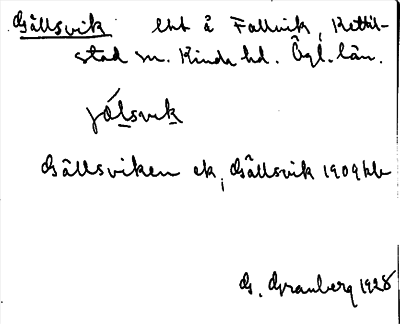 Gällsvik lht å Fallvik, Kettil-
stad sn. Kinda hd. Ögl. län.
jǽlsvik
Gällsviken ek, Gällsvik 1909 kb
G. Granberg 1928